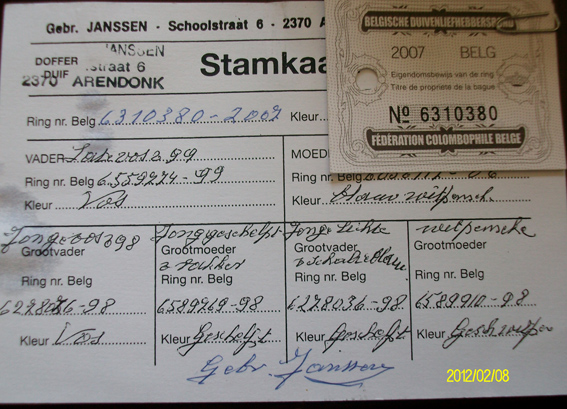 Gebr. JANSSEN - Schoolstraat 6 - 2370 A
BELGISCHE DUIVENLIEFHEBBERSB
JANSSEN
DOFFER
DUIF straat 6
2370 ARENDONK
Stamkaa
2007 BELG
Eigendomsbewijs van de ring
Titre de propriété de la bague
Nº 6310380
FÉDÉRATION COLOMBOPHILE BELGE
Ring nr. Belg 6310380-2007 Kleur
VADER 99
MOED
Ring nr. Belg 6559274-99
Ring nr. Belg
Kleur Vos
Kleur
Jonge vos 98
Grootvader
Grootmoeder
Jonge Lichte
Grootvader
witpenneke
Grootmoeder
Ring nr. Belg
Ring nr. Belg
Ring nr. Belg
Ring nr. Belg
-98
6589969-98
6278036-98
6589910-98
Kleur Vos
Kleur Geschelpt
Kleur Geschelpt
Kleur
Gebr. Janssen
2012/02/08